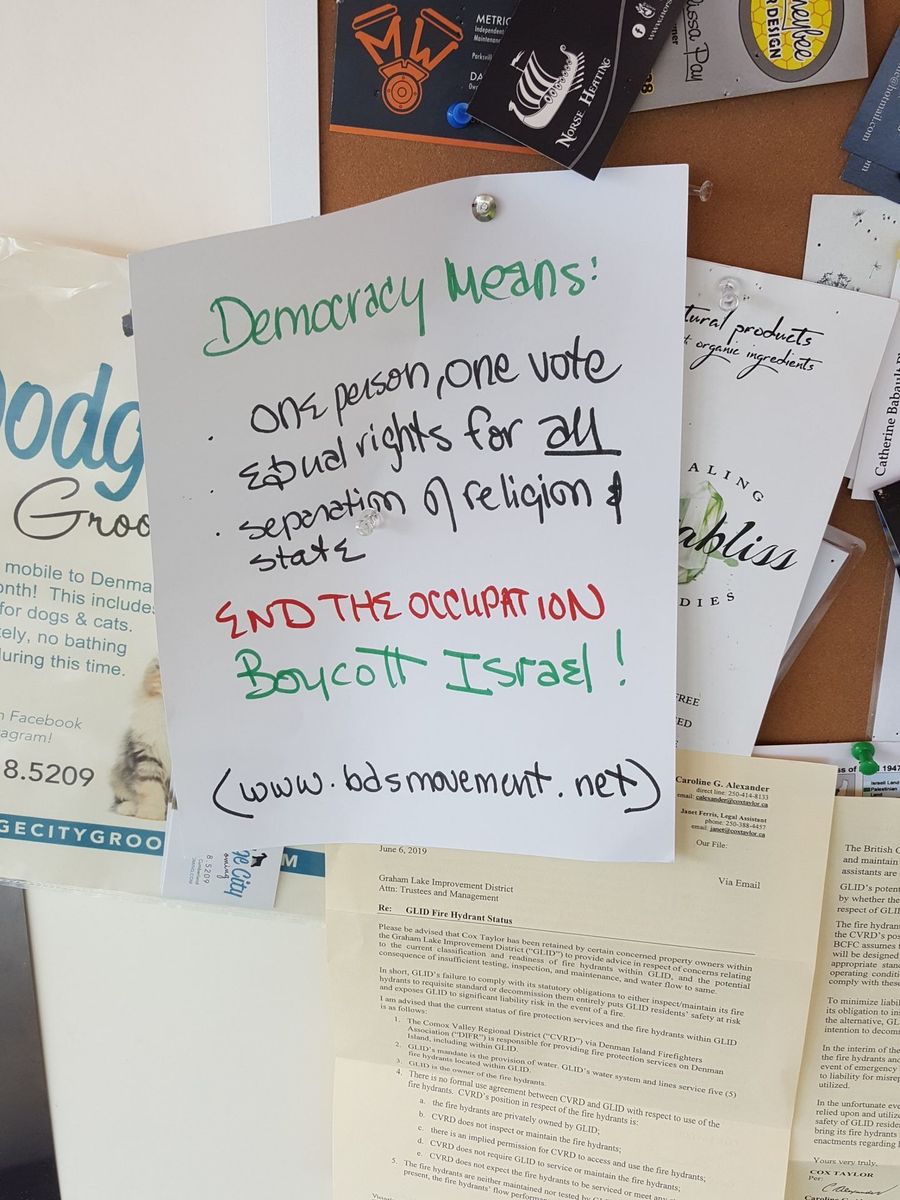 MW
METRIC
Independent
Maintenance
Parksvill
NORSE HEATING
ssa Pay
neybee
R DESIGN
e@hotmail.com
Democracy Means:
· one person, one vote
· equal rights for all
· separation of religion &
state
END THE OCCUPATION
Boycott Israel!
(www.bdsmovement.net)
tural products
organic ingredients
ALING
abliss
DIES
FREE
Catherine Babault
odg
Groo
mobile to Denma
onth! This includes
for dogs & cats.
tely, no bathing
during this time.
n Facebook
tagram!
8.5209
GECITYGROO
M
ge City
oming
8.5209
1947
Israeli Land
Palestinian
Land
Caroline G. Alexander
direct line: 250-414-8133
email: calexander@coxtaylor.ca
Janet Ferris, Legal Assistant
phone: 250-388-4457
email: janet@coxtaylor.ca
Our File:
June 6, 2019
Via Email
Graham Lake Improvement District
Attn: Trustees and Management
Re: GLID Fire Hydrant Status
Please be advised that Cox Taylor has been retained by certain concerned property owners within
the Graham Lake Improvement District ("GLID") to provide advice in respect of concerns relating
to the current classification and readiness of fire hydrants within GLID, and the potential
consequence of insufficient testing, inspection, and maintenance, and water flow to same.
In short, GLID's failure to comply with its statutory obligations to either inspect/maintain its fire
hydrants to requisite standard or decommission them entirely puts GLID residents' safety at risk
and exposes GLID to significant liability risk in the event of a fire.
I am advised that the current status of fire protection services and the fire hydrants within GLID
is as follows:
1. The Comox Valley Regional District ("CVRD") via Denman Island Firefighters
Association ("DIFR") is responsible for providing fire protection services on Denman
Island, including within GLID.
2. GLID's mandate is the provision of water. GLID's water system and lines service five (5)
fire hydrants located within GLID.
3. GLID is the owner of the fire hydrants.
4. There is no formal use agreement between CVRD and GLID with respect to use of the
fire hydrants. CVRD's position in respect of the fire hydrants is:
a. the fire hydrants are privately owned by GLID;
b. CVRD does not inspect or maintain the fire hydrants;
c. there is an implied permission for CVRD to access and use the fire hydrants;
d. CVRD does not require GLID to service or maintain the fire hydrants;
e. CVRD does not expect the fire hydrants to be serviced or meet any
5. The fire hydrants are neither maintained nor tested by
present, the fire hydrants' flow
The British C
and maintain
assistants are
GLID's potent
by whether the
respect of GLI
The fire hydran
the CVRD's po
BCFC assumes t
will be designed
appropriate stan
operating condit
comply with these
To minimize liabil
its obligation to ins
the alternative, GL
intention to decom
In the interim of the
the fire hydrants and
event of emergency
to liability for misrep
utilized.
In the unfortunate eve
relied upon and utilize
safety of GLID reside
bring its fire hydrants
enactments regarding
Yours very truly,
COX TAYLOR
Per: